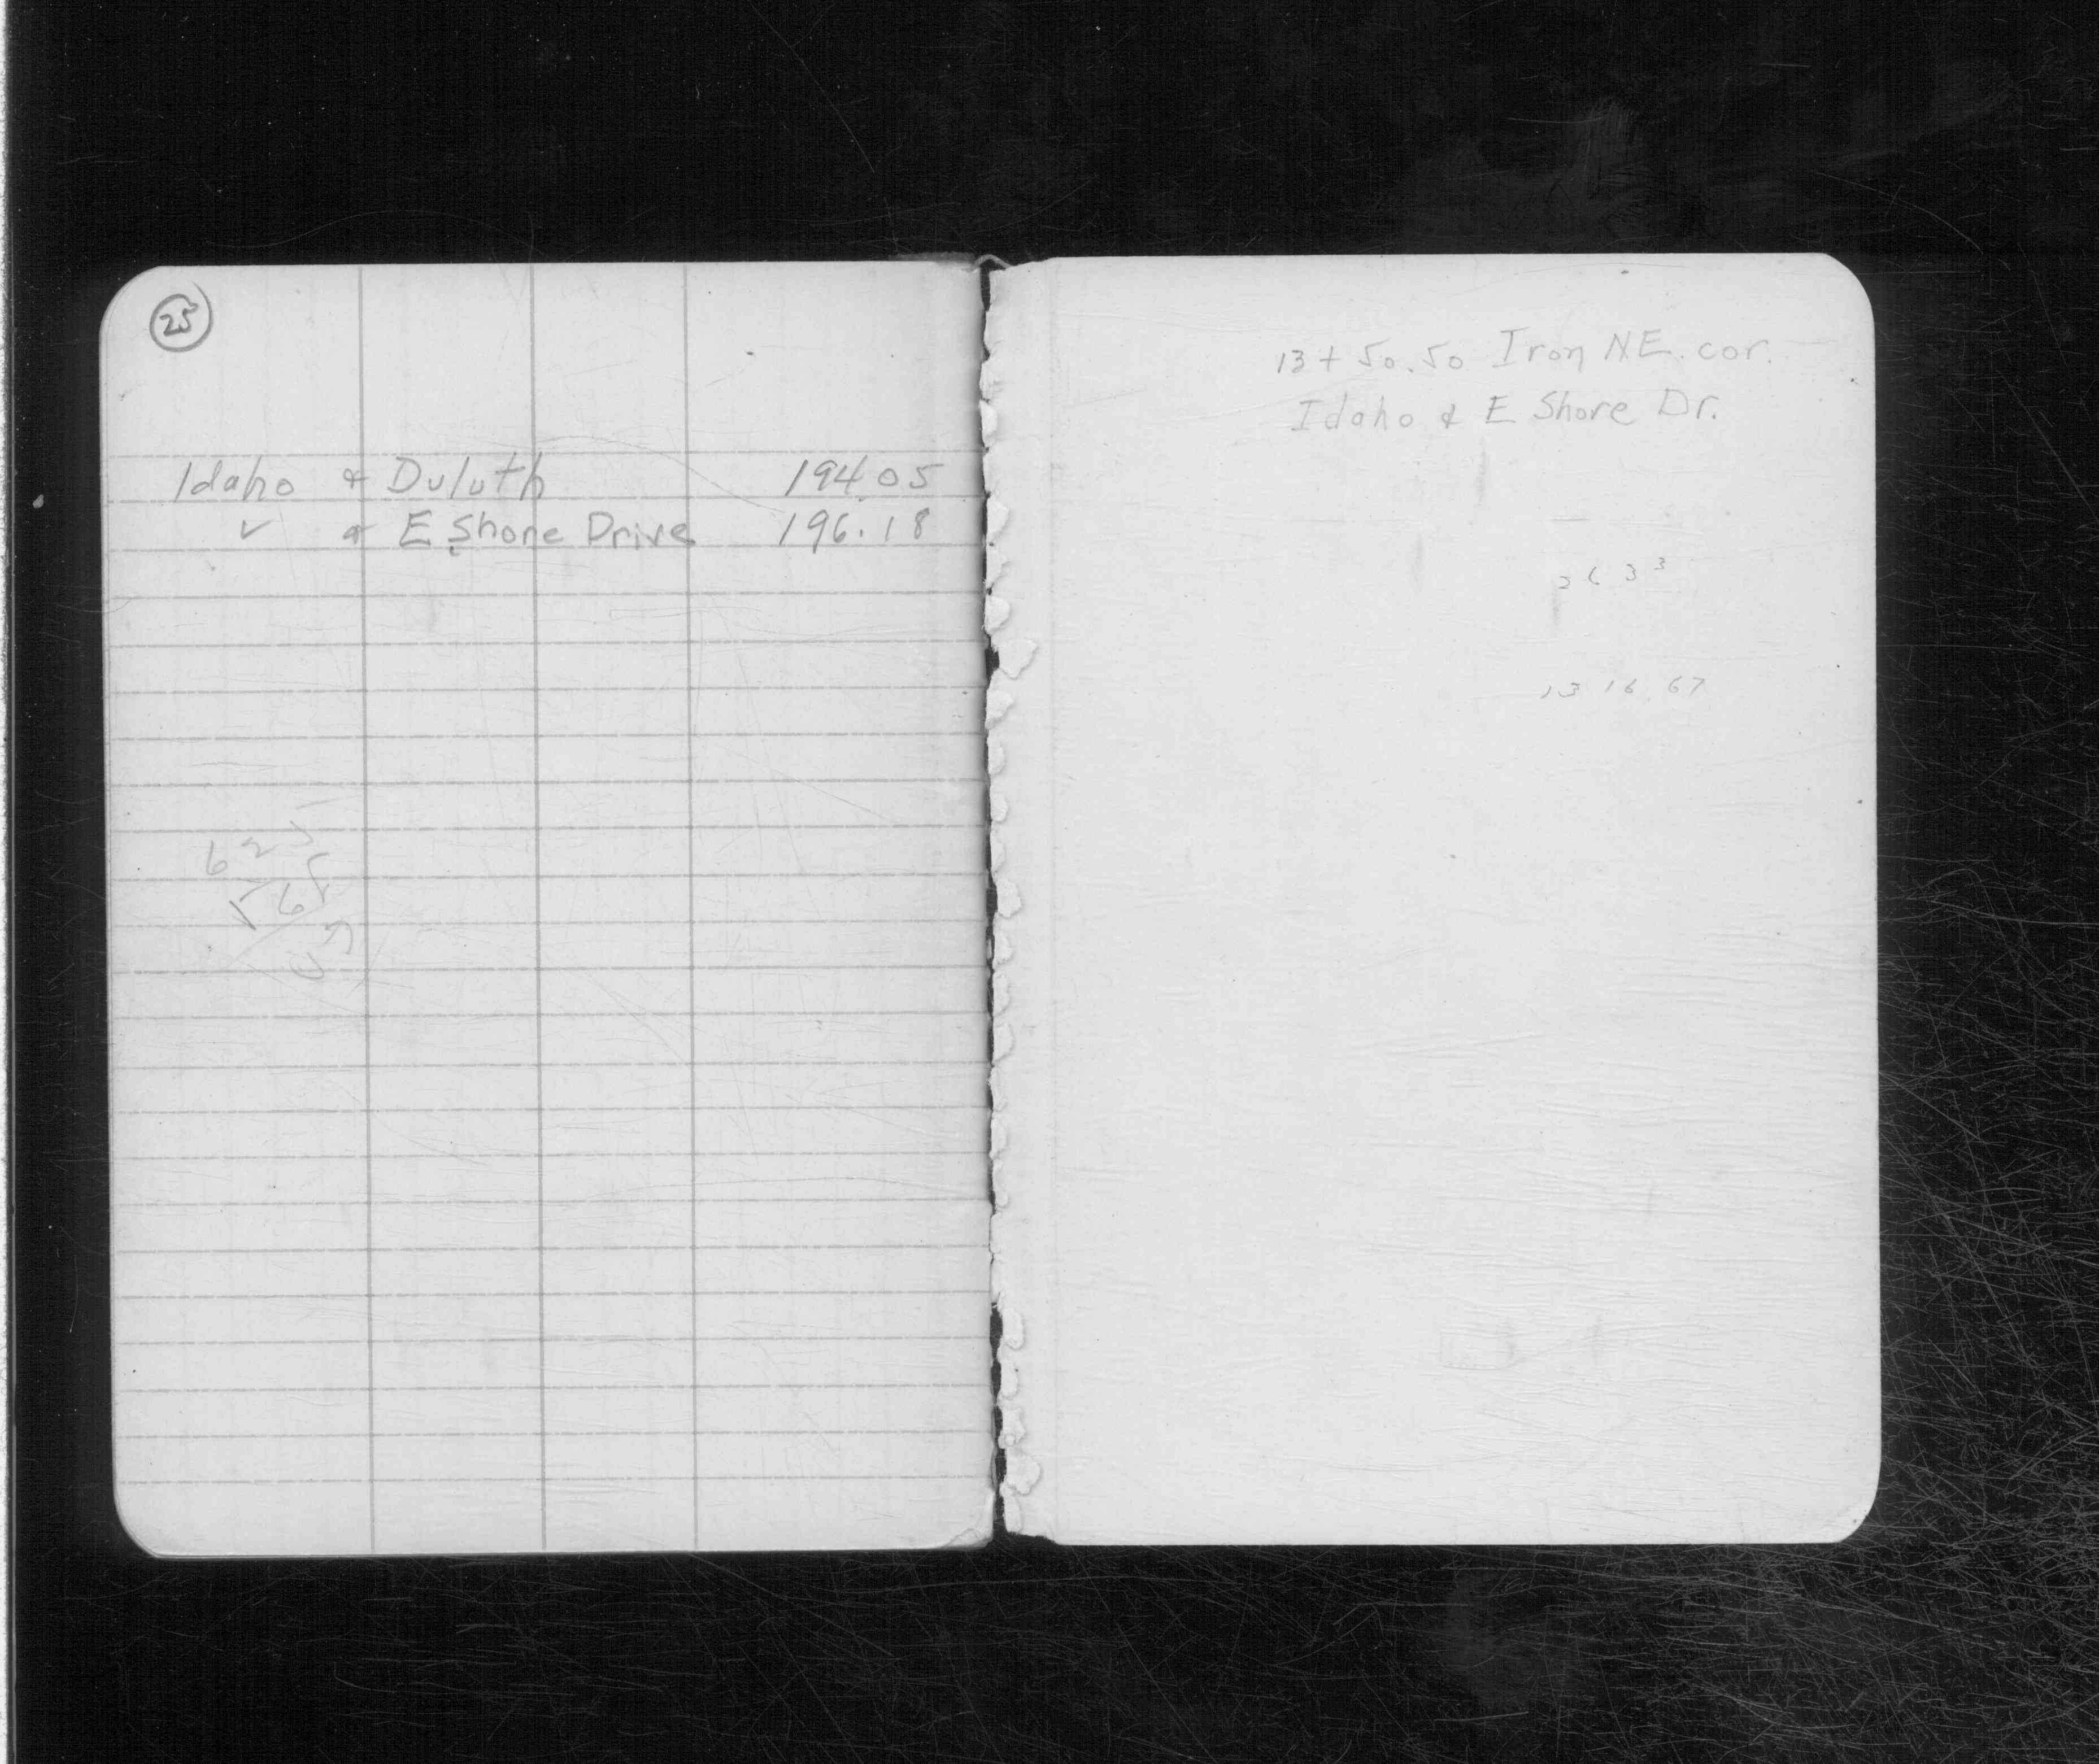 25
Idaho & Duluth 194.05
✓ & E Shore Drive 196.18
13+50.50 Iron NE. cor.
Idaho & E Shore Dr.
2633
1316.67